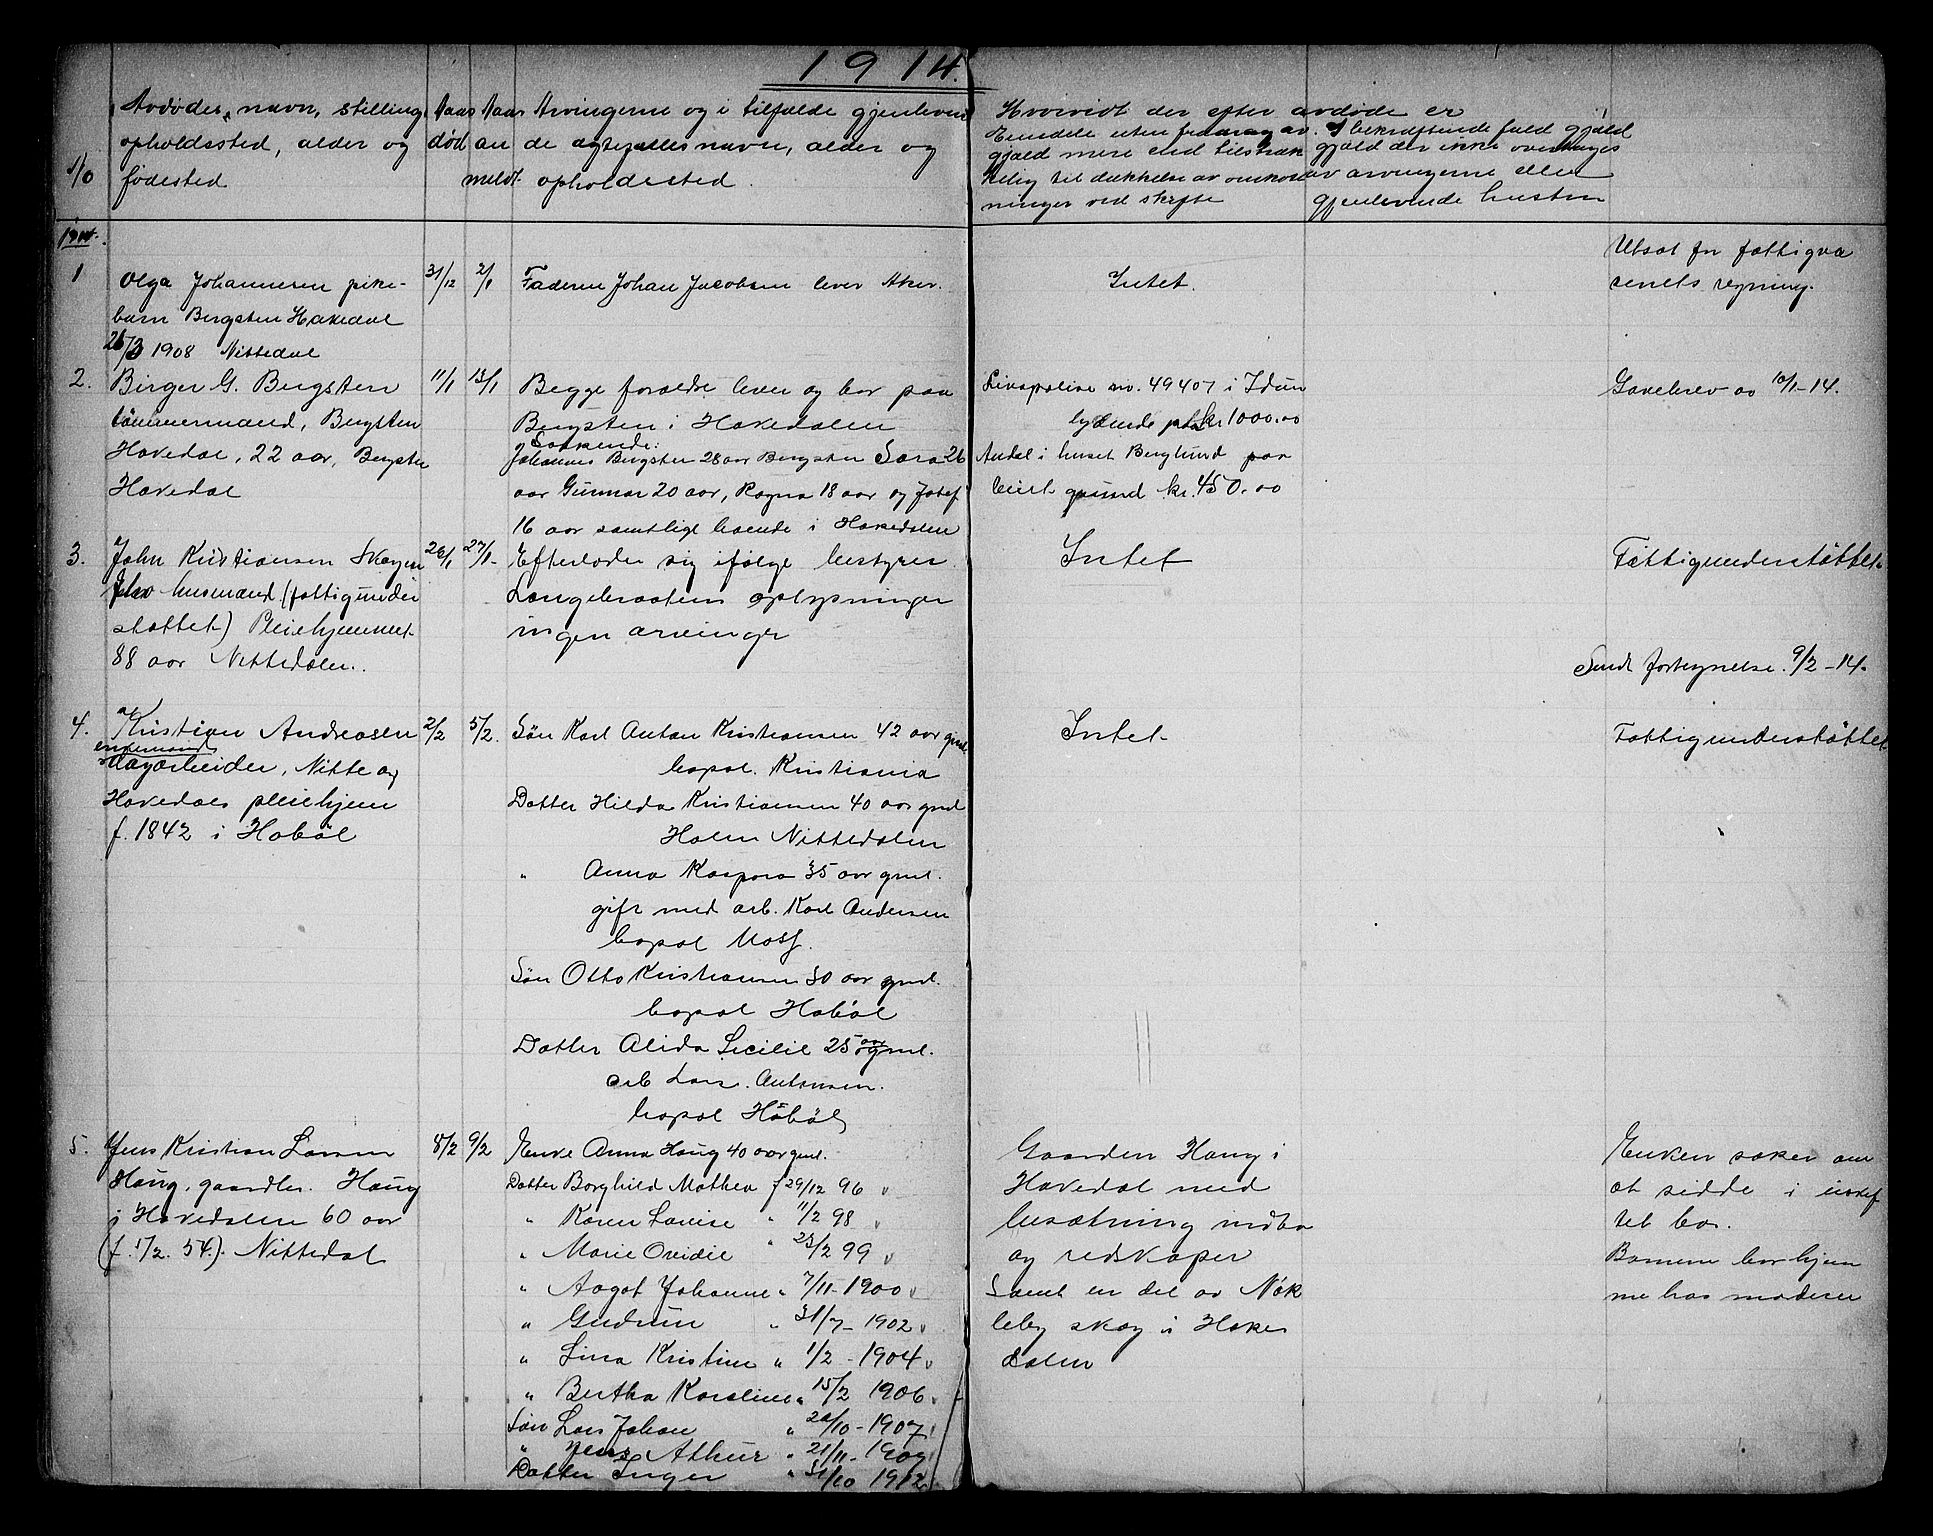 1914.
Avdødes navn, stilling,
opholdssted, alder og
fødested
Naar
død
Naar
an
meldt.
Arvingerne og i tilfælde gjenleven
de ægtefælles navn, alder og
opholdssted.
Hvorvidt der efter avdøde er
Eiendele uten fradrag av
gjæld mere end tilstræk
kelig til dækkelse av omkost
ninger ved skifte
I bekræftende fald gjæld
gjæld der ikke overtages
av arvingerne eller
gjenlevende hustru
1914.
1 Olga Johannesen pike- 31/12 2/1 Faderen Johan Jacobsen lever Aker. Intet. Utsat for fattigvæ
barn Bergsten Hakedal senets regning.
26/3 1908 Nittedal
2. Birger G. Bergsten 11/1 13/1 Begge forældre lever og bor paa Livspolise nr. 49407 i Idun Gavebrev av 10/1-14.
tømmermand, Bergsten Bergsten i Hakedalen lydende paa kr. 1000.00
Søskende:
Hakedal, 22 aar, Bergsten Johannes Bergsten 28 aar Bergsten Sara 26 Andel i huset Berglund paa
Hakedal aar Gunnar 20 aar, Ragna 18 aar og Josef leiet grund kr. 450.00
16 aar samtlige boende i Hakedalen
3. John Kristiansen Skøyen 26/1 27/1- Efterlader sig ifølge bestyrer Intet Fattigunderstøttet.
husmand (fattigunder Langebraatens oplysninger
støttet) Pleiehjemmet ingen arvinger
88 aar Nittedalen. Sendt fortegnelse. 9/2-14.
4. Kristian Andreasen 2/2 5/2. Søn Karl Anton Kristiansen 42 aar gml Intet Fattigunderstøttet
enkemand
dagarbeider, Nitte og bopæl. Kristiania
Hakedals pleiehjem Datter Hilda Kristiansen 40 aar gml
f. 1842 i Hobøl Holm Nittedalen
" Anna Kaspara 35 aar gml.
gift med arb. Karl Andersen
bopæl Moss.
Søn Otto Kristiansen 30 aar gml.
bopæl Hobøl
Datter Alida Secilie 25 aar gml.
arb Lars. Antonsen.
bopæl Hobøl
5. Jens Kristian Larsen 8/2 9/2 Enke Anna Haug 40 aar gml. Gaarden Haug i Enken søker om
Haug, gaardbr. Haug Datter Borghild Mathea f 29/12 96 Hakedal med at sidde i uskif
i Hakedalen 60 aar " Karen Lovise " 11/2 98 besætning indbo tet bo.
(f. 1/2. 54.) Nittedal " Marie Ovidie " 23/2 99 og redskaper Barnene bor hjem
" Aagot Johanne " 7/11-1900 Samt en del av Nøk me hos moderen
" Gudrun " 31/7-1902 leby skog i Hake
" Lina Kristine " 1/2-1904 dalen
" Bertha Karoline " 15/2 1906
Søn Lars Johan " 20/10-1907
" Jens Arthur " 21/11-1909
Datter Inger " 31/10 1912